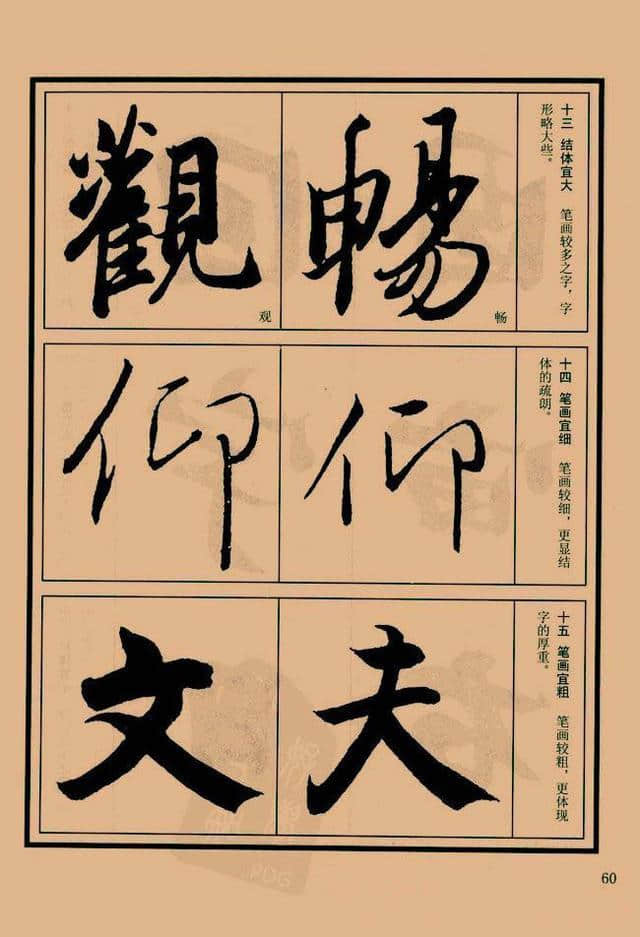 十三 结体宜大 笔画较多之字，字
形略大些。
暢
畅
觀
观
十四 笔画宜细 笔画较细，更显结
体的疏朗。
仰
仰
十五 笔画宜粗 笔画较粗，更体现
字的厚重。
夫
文
60
PDG